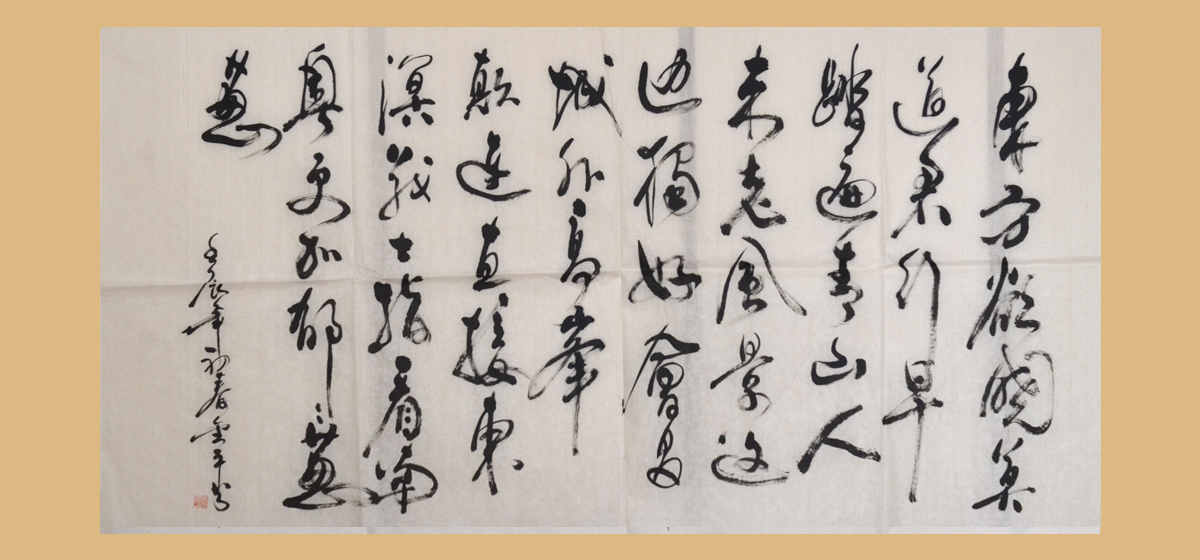 東方欲曉莫
道君行早
踏遍青山人
未老風景這
边獨好會昌
城外高峯
顛連直接東
溟戰士指看南
粵更加郁〻葱
葱
壬辰年初春